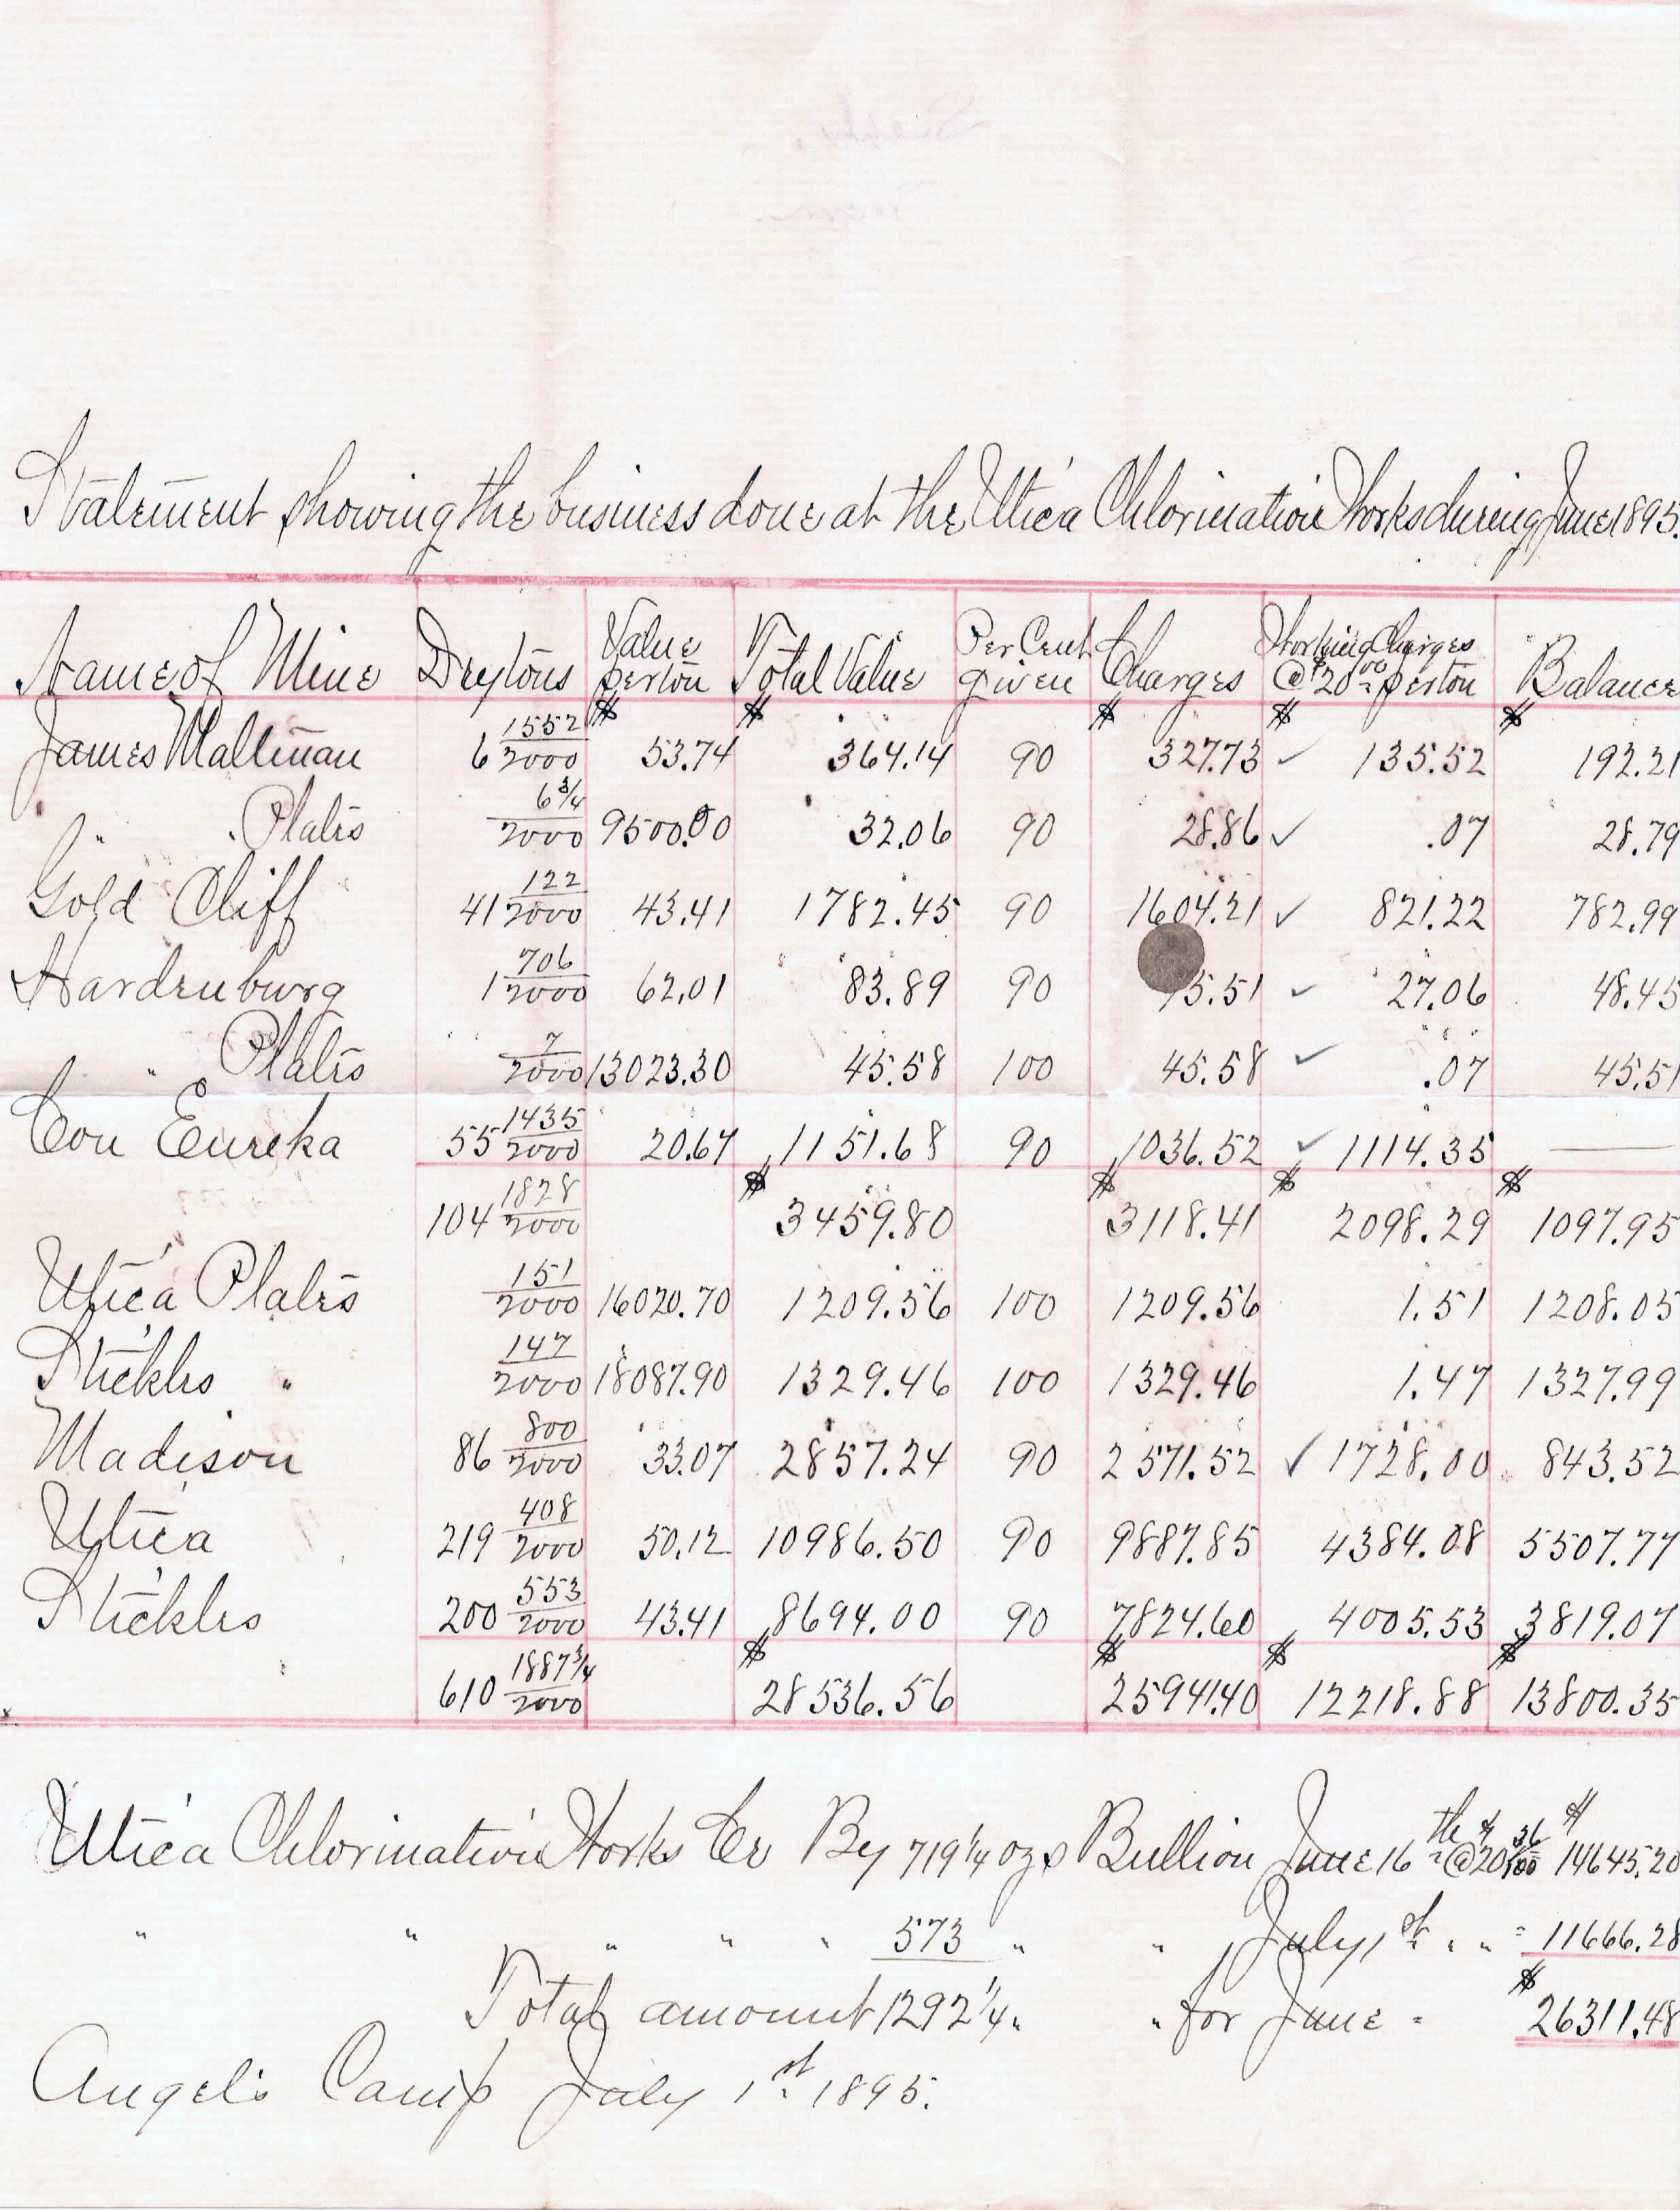 Statement showing the business done at the Utica Chlorination Works during June 1895.
Name of Mine Dry tons Value per ton Total Value Per Cent given Charges Working Charges @ $20.00 per ton Balance
James Maltman 6 1552/2000 $53.74 $364.14 90 $327.73 ✓ $135.52 $192.21
" " Plates 6 3/4/2000 9500.00 32.06 90 28.86 ✓ .07 28.79
Gold Cliff 41 122/2000 43.41 1782.45 90 1604.21 ✓ 821.22 782.99
Hardenburg 1 706/2000 62.01 83.89 90 75.51 ✓ 27.06 48.45
" Plates 7/2000 13023.30 45.58 100 45.58 ✓ .07 45.51
Con Eureka 55 1435/2000 20.67 1151.68 90 1036.52 ✓ 1114.35 —
104 1828/2000 $3459.80 $3118.41 $2098.29 $1097.95
Utica Plates 151/2000 16020.70 1209.56 100 1209.56 1.51 1208.05
Stickles " 147/2000 18087.90 1329.46 100 1329.46 1.47 1327.99
Madison 86 800/2000 33.07 2857.24 90 2571.52 ✓ 1728.00 843.52
Utica 219 408/2000 50.12 10986.50 90 9887.85 4384.08 5507.77
Stickles 200 553/2000 43.41 8694.00 90 7824.60 4005.53 3819.07
610 1887 3/4/2000 $28536.56 $25941.40 $12218.88 $13800.35
Utica Chlorination Works Cr By 719 1/4 ozs Bullion June 16th @ $20 36/100 $14645.20
" " " " " 573 " " July 1st " " = 11666.28
Total amount 1292 1/4 " " for June = $26311.48
Angels Camp July 1st 1895.